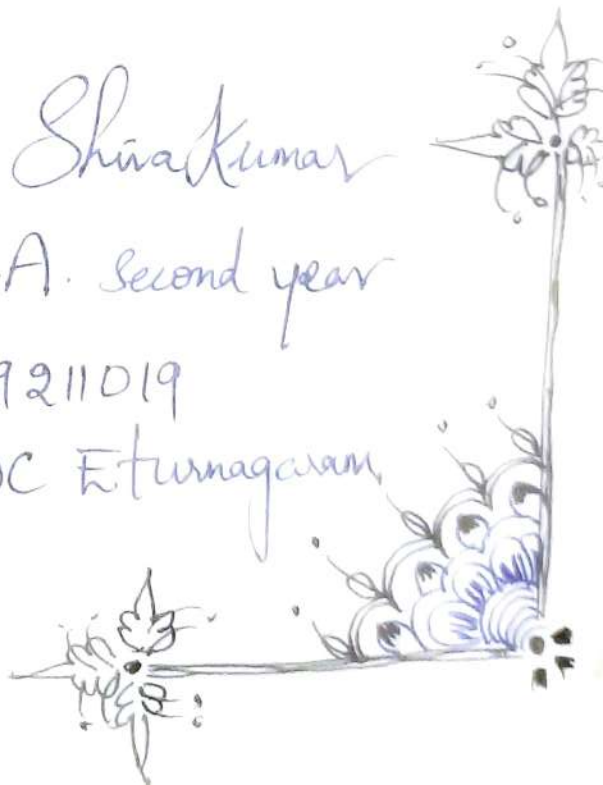 Shiva Kumar
A. second year
9211019
DC Eturnagaram